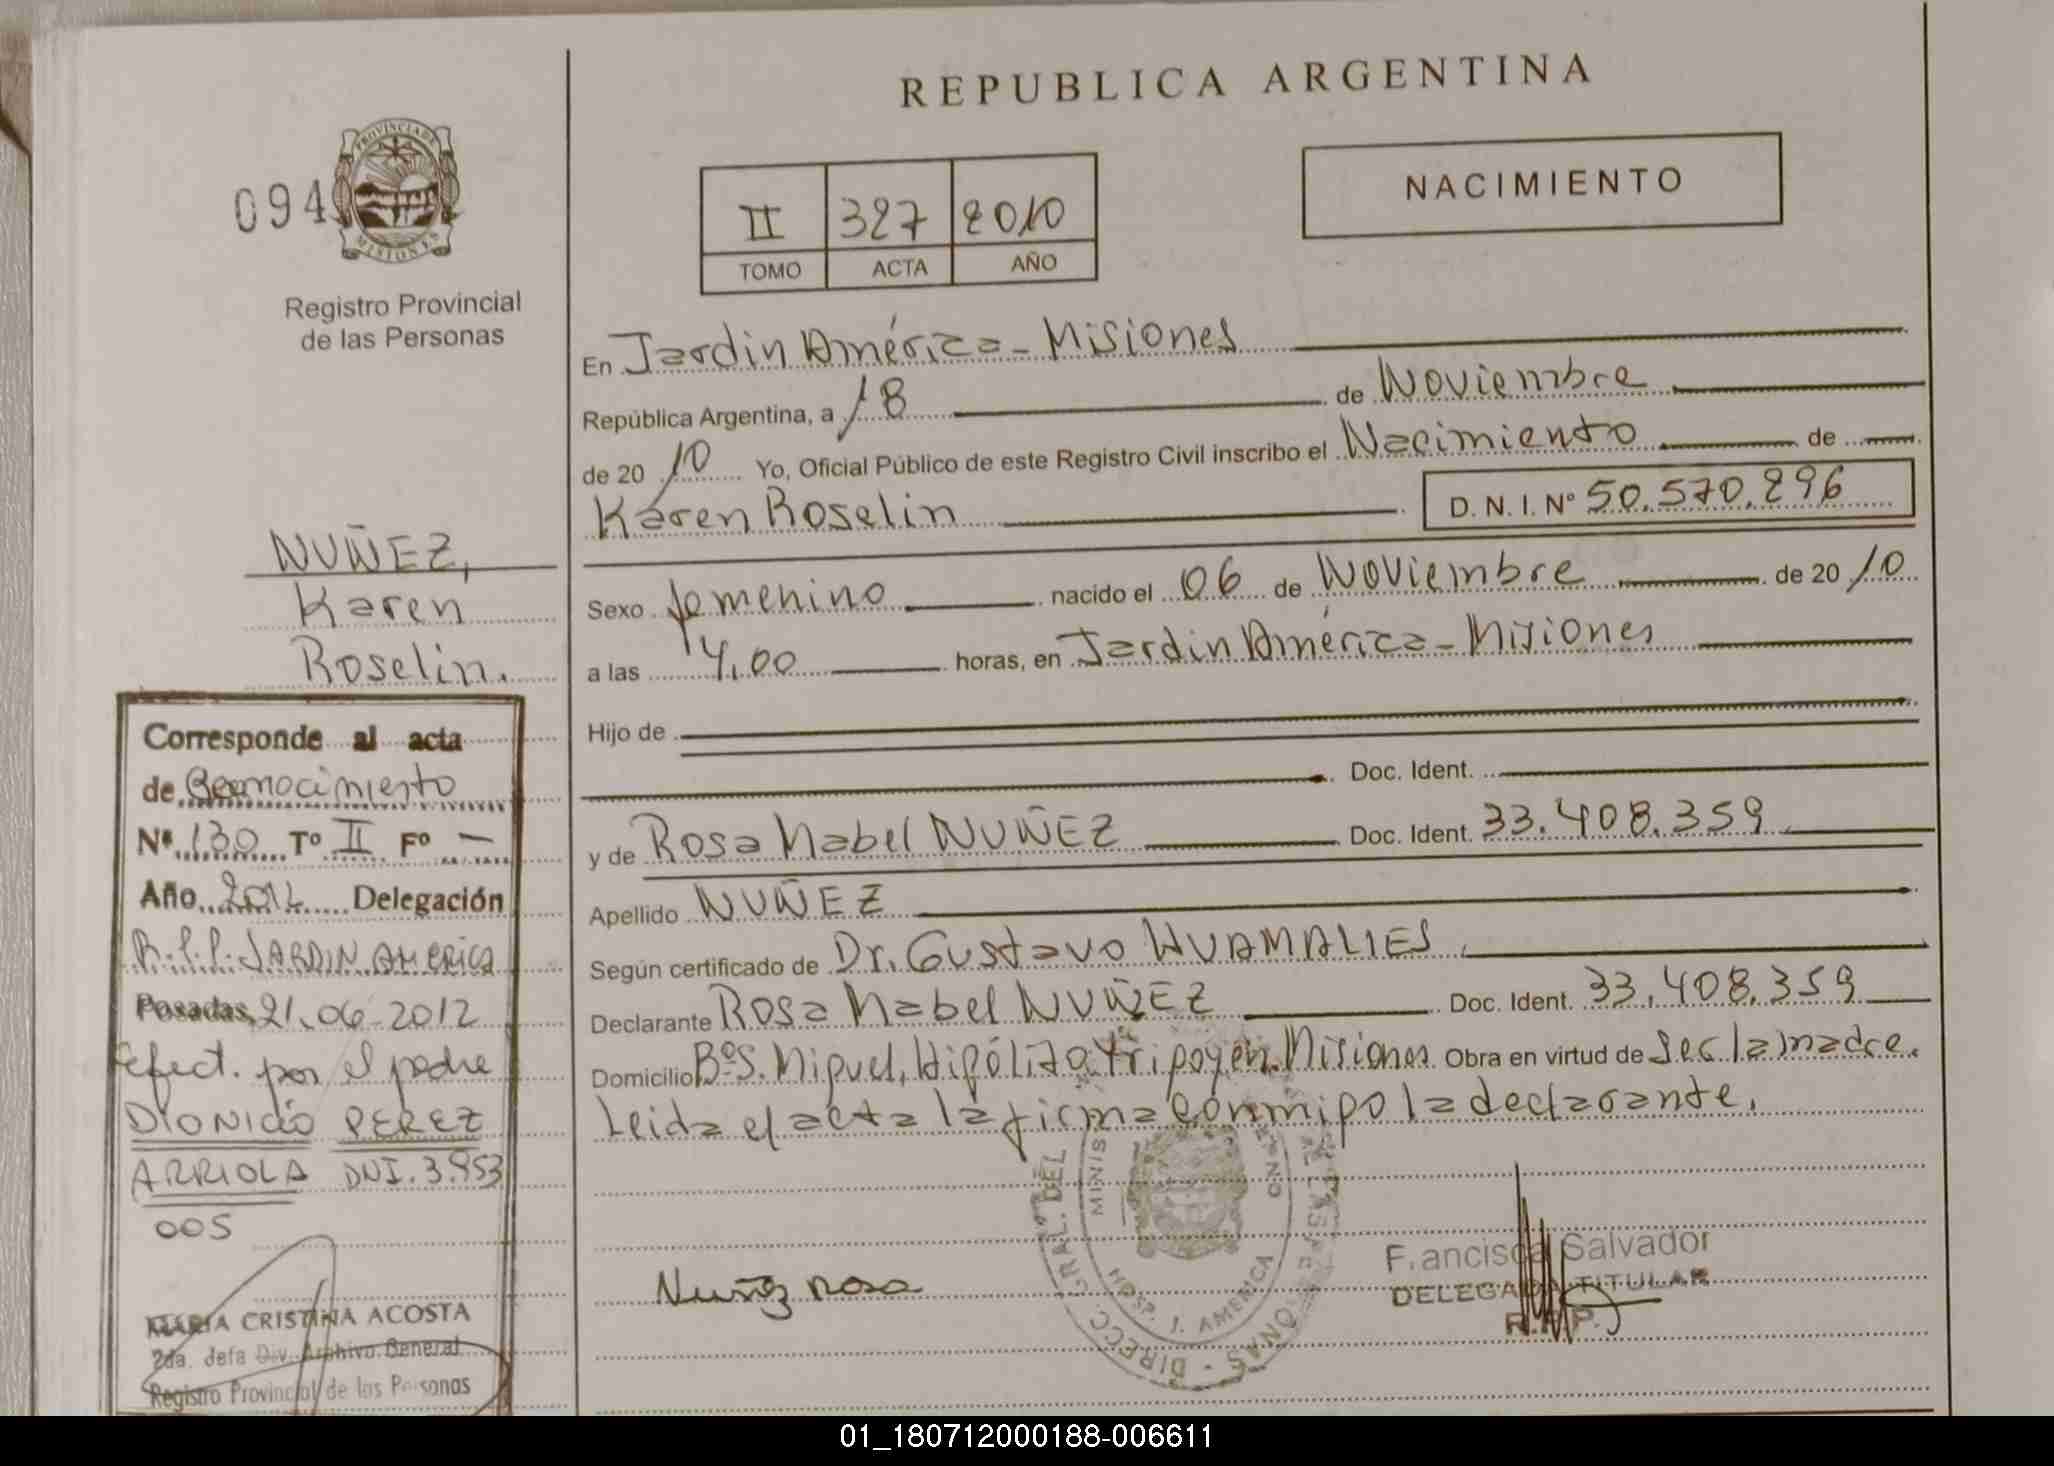 REPUBLICA ARGENTINA
094
PROVINCIA DE
MISIONES
Registro Provincial
de las Personas
II 327 2010
TOMO ACTA AÑO
NACIMIENTO
En Jardin América - Misiones
República Argentina, a 18 de Noviembre
de 20 10 Yo, Oficial Público de este Registro Civil inscribo el Nacimiento de
Karen Roselin D. N. I. Nº 50.570.296
Sexo femenino nacido el 06 de Noviembre de 20 10
a las 14,00 horas, en Jardin América - Misiones
Hijo de
Doc. Ident.
y de Rosa Mabel NUÑEZ Doc. Ident. 33.408.359
Apellido NUÑEZ
Según certificado de Dr. Gustavo HUAMALIES
Declarante Rosa Mabel NUÑEZ Doc. Ident. 33.408.359
Domicilio Bº S. Miguel, Hipólito Yripoyen. Misiones. Obra en virtud de ser la madre.
Leida el acta la firma conmigo la declarante.
NUÑEZ,
Karen
Roselin.
Corresponde al acta
de Reconocimiento
Nº 130 Tº II Fº —
Año 2012 Delegación
R.P.P. JARDIN AMERICA
Posadas, 21.06-2012
efect. por el padre
DIONICIO PEREZ
ARRIOLA DNI. 3.953
005
MARIA CRISTINA ACOSTA
2da. Jefa Div. Archivo General
Registro Provincial de las Personas
Nuñez Rosa
DIRECC. GRAL. DEL
MINIS
HOSP. J. AMERICA
Salvador
DELEGADA TITULAR
R.P.P.
01_180712000188-006611